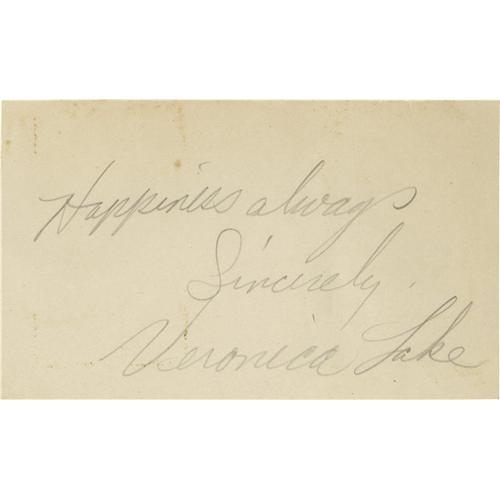 Happiness always
Sincerely.
Veronica Lake